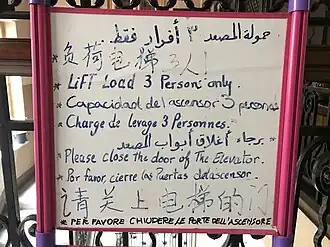 حمولة المصعد ٣ أفرار فقط.
负荷电梯 3人!
* LiFT Load 3 Person: only.
* Capacidad del ascensor 3 personas
* Charge de levage 3 Personnes.
* برجاء أغلاق أبواب المصعد
* Please close the door of The Elevator.
* Por favor, cierre las Puertas del ascensor.
请关上电梯的门
* PER FAVORE CHIUDERE LE PORTE DELL'ASCENSORE